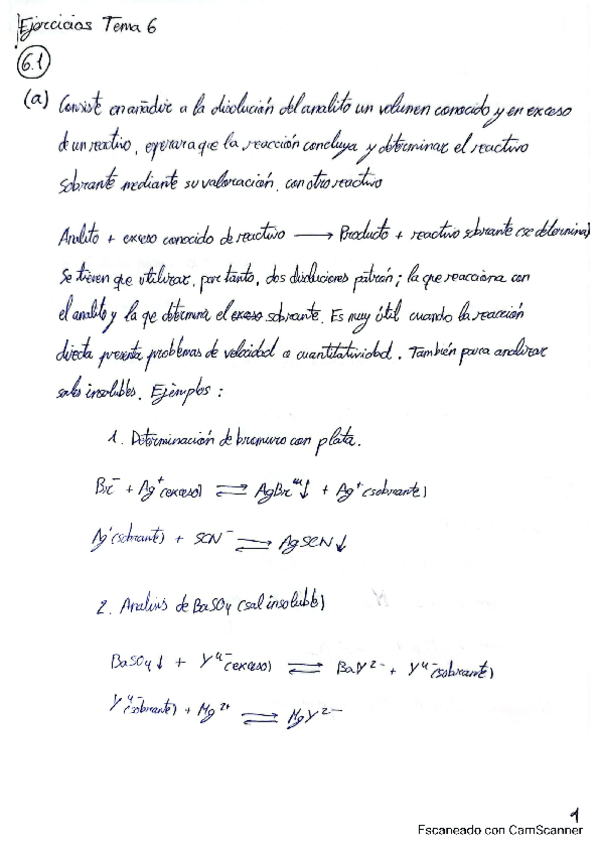 Ejercicios Tema 6
6.1
(a) Consiste en añadir a la disolución del analito un volumen conocido y en exceso
de un reactivo, esperar a que la reacción concluya y determinar el reactivo
sobrante mediante su valoración, con otro reactivo
Analito + exceso conocido de reactivo ⟶ Producto + reactivo sobrante (se determina)
Se tienen que utilizar, por tanto, dos disoluciones patrón; la que reacciona con
el analito y la que determina el exceso sobrante. Es muy útil cuando la reacción
directa presenta problemas de velocidad o cuantitatividad. También para analizar
sales insolubles. Ejemplos:
1. Determinación de bromuro con plata.
Br⁻ + Ag⁺ (exceso) ⇌ AgBr ↓ + Ag⁺ (sobrante)
Ag⁺ (sobrante) + SCN⁻ ⇌ AgSCN ↓
2. Analisis de BaSO4 (sal insoluble)
BaSO4 ↓ + Y⁴⁻ (exceso) ⇌ BaY²⁻ + Y⁴⁻ (sobrante)
Y⁴⁻ (sobrante) + Mg²⁺ ⇌ MgY²⁻
1
Escaneado con CamScanner